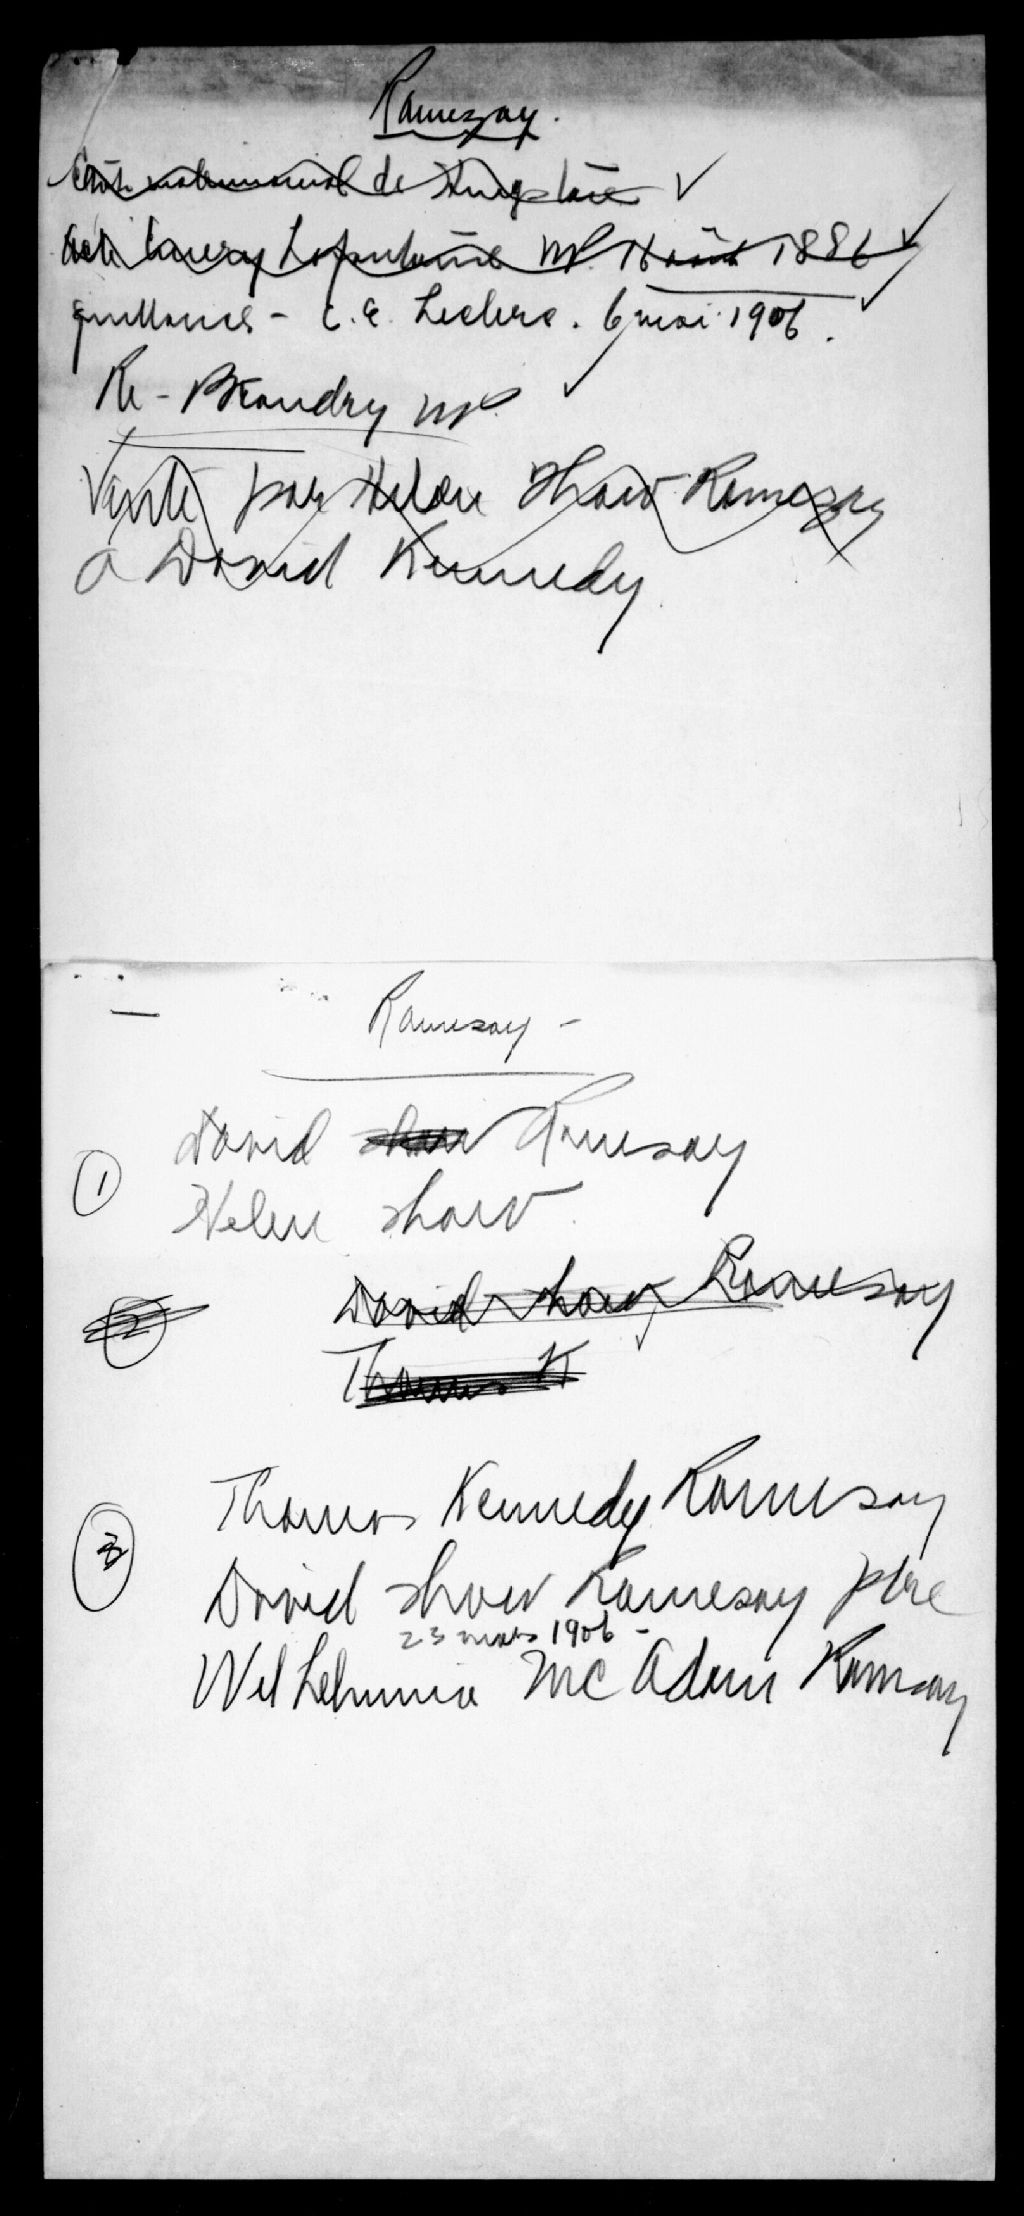 Ramezay.
matrimonial de
Acte 1886
Quittances - C. E. Leclerc. 6 mai 1906.
Re - Beaudry NP.
Vente par Helen Shaw Ramezay
a David Kennedy
Ramezay -
David Shaw Ramesay
1 Helen Shaw
2 David Shaw Ramesay
Thomas K
Thomas Kennedy Ramesay
3 David Shaw Ramesay père
23 mars 1906 -
Wilhelmina McAdam Ramsay